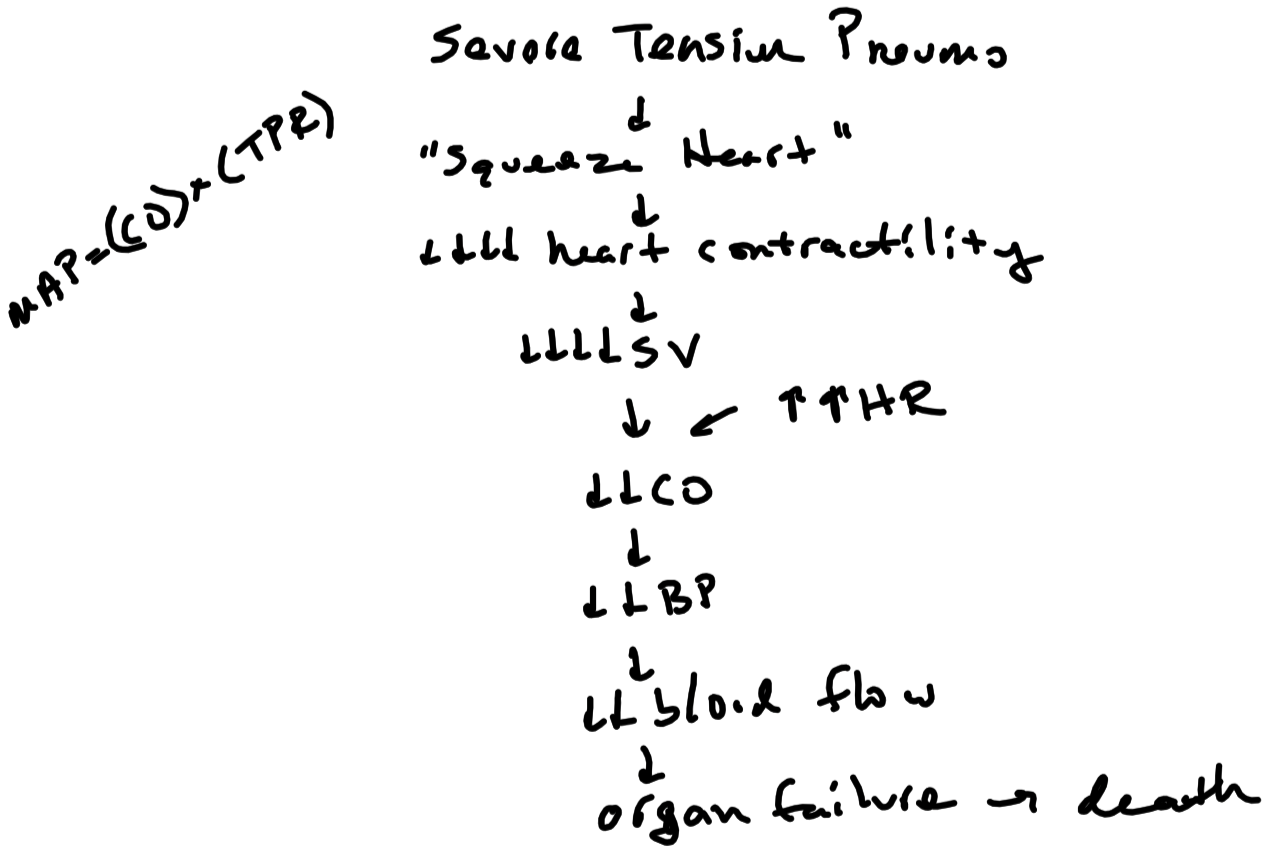 Severe Tension Pneumo
↓
"Squeeze Heart"
MAP=(CO)x(TPR)
↓
↓↓↓↓ heart contractility
↓
↓↓↓↓SV
↓ ↙ ↑↑HR
↓↓CO
↓
↓↓BP
↓
↓↓blood flow
↓
organ failure → death